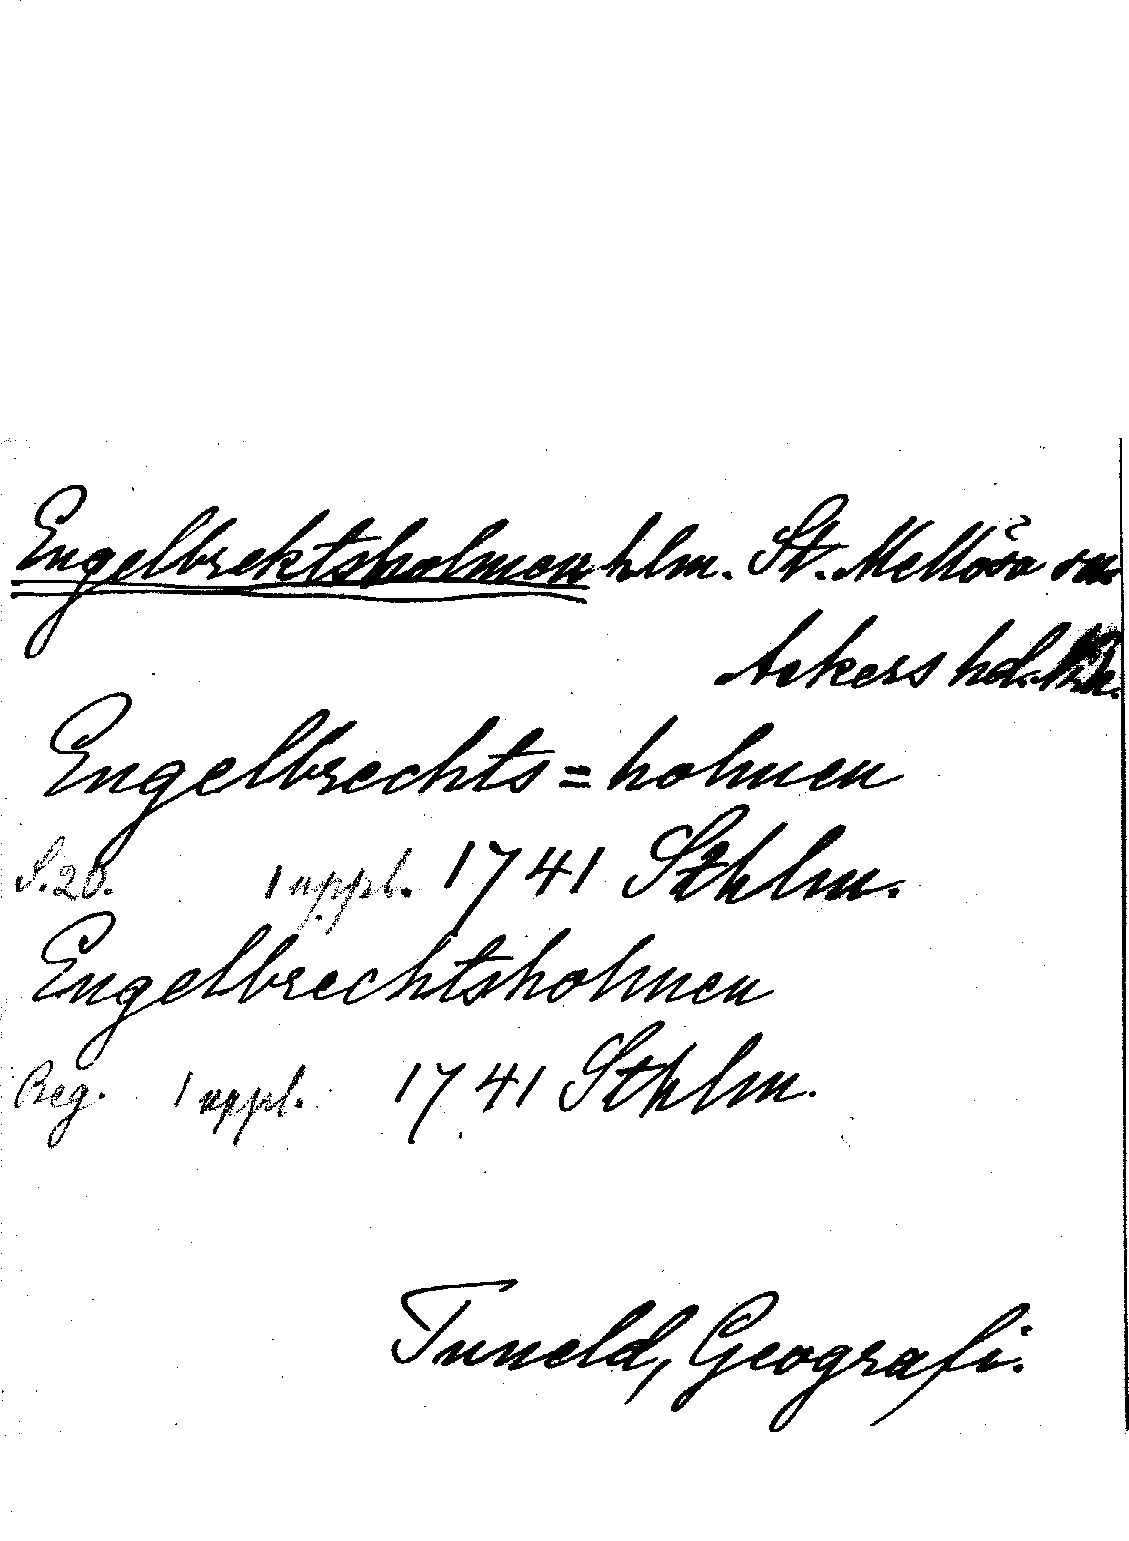 Engelbrektsholmen hlm. St. Mellösa sn
Askers hd.
Engelbrechts=holmen
S.20. 1 uppl. 1741 Sthlm.
Engelbrechtsholmen
Reg. 1 uppl. 1741 Sthlm.
Tuneld, Geografi.